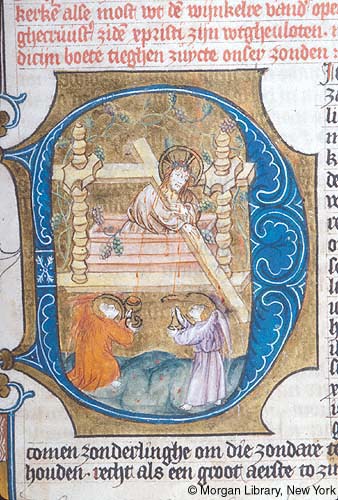 kerke alse most wt de winkelre vand ope
ghecruust zide xpristi zijn wtgheuloten.
dicijn boete tieghen zuycte onser zonden:
comen zonderlinghe om die zondare t
houden. recht als een groot aerste to zi
© Morgan Library, New York